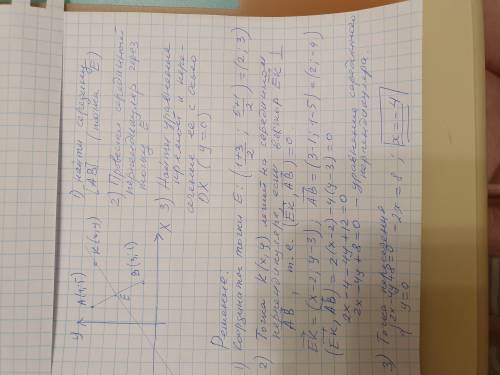 1) найти середину
[AB] (точка E)
2) Провести серединный
перпендикуляр через
точку E
3) Найти уравнение
прямой и пере-
сечение её с осью
OX (y=0)
y
A(1;5)
K(x;y)
E
B(3;1)
X
Решение.
1) Координаты точки E: (1+3/2; 5+1/2) = (2;3)
2) Точка K(x,y) лежит на серединном
перпендикуляре, если вектор EK ⊥
AB, т.е. (EK, AB) = 0
EK = (x-2; y-3); AB = (3-1; 1-5) = (2;-4)
(EK, AB) = 2(x-2) - 4(y-3) = 0
2x-4-4y+12=0
2x-4y+8=0 - уравнение серединного
перпендикуляра.
3) Точка пересечения
{2x-4y+8=0
y=0
-2x=8; x=-4